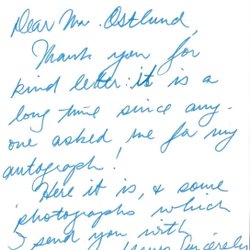 Dear Mr. Ostlund,
Thank you for
kind letter: it is a
long time since any-
one asked me for my
autograph!
Here it is, & some
photographs which
I send you with